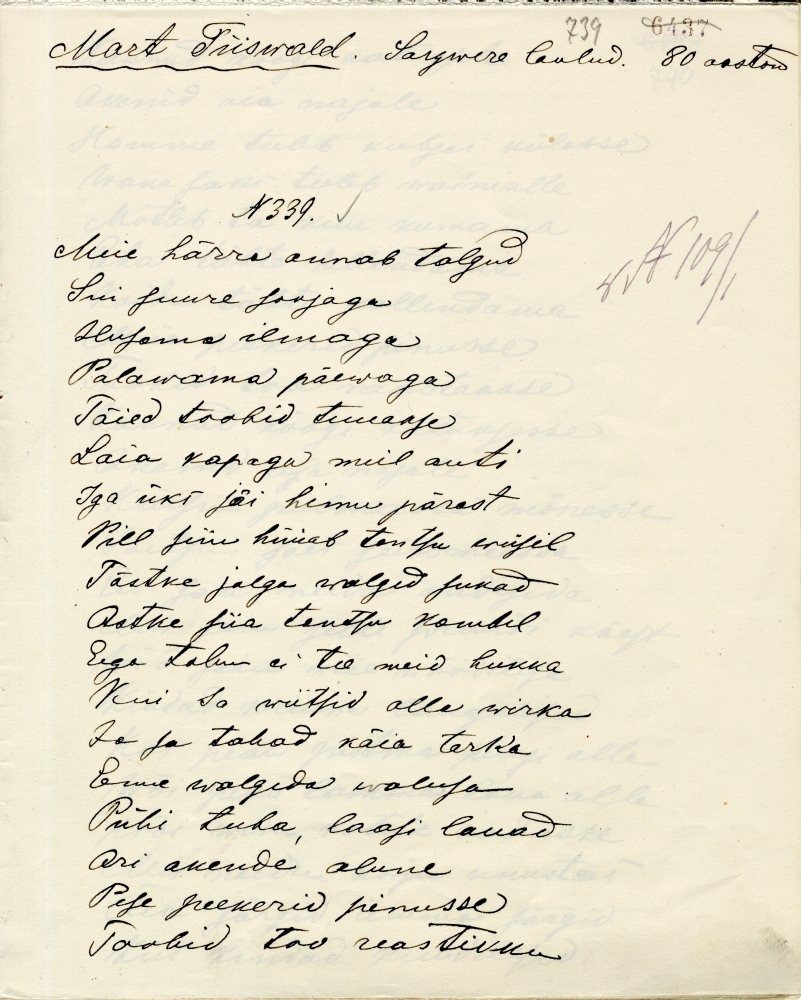 739 6437
Mart Tiiswald. Sargwere laulud. 80 aastan
N 339.
N 109/1
Meie härra annab talgud
Sui suure soojaga
Ilusama ilmaga
Palawama päewaga
Täied toobid tuuakse
Laia kapaga meil anti
Iga üks jäi himu pärast
Pill siin hüüab tantsu wiisil
Tõstke jalga walged sukad
Astke siia tantsu kombel
Ega talu ei tee meid hukka
Kui sa wiitsid olla wirka
Ja sa tahad käia tarka
Enne walgeda walusa
Pühi tuba, laasi lauad
Äri akende alune
Pese peekerid pinusse
Toobid too reastikku